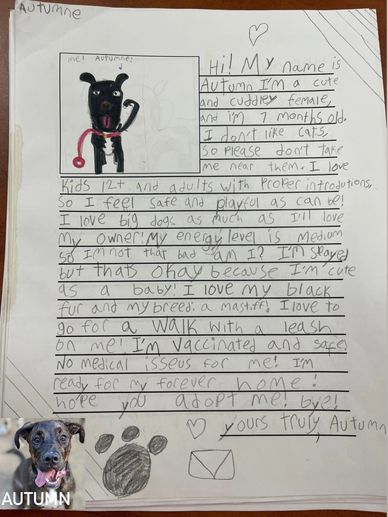 Autumne
me! Autumne!
Hi! My name is
Autumn I'm a cute
and cuddley female,
and I'm 7 months old.
I don't like cats,
So please don't take
me near them. I love
Kids 12+ and adults with Proper introdutions,
So I feel safe and playful as can be!
I love big dogs as much as I'll love
my owner! My energy level is Medium
so I'm not that bad am I? I'm spayed
but thats okay because I'm cute
as a baby! I love my black
fur and my breed: a mastiff! I love to
go for a walk with a leash
on me! I'm vaccinated and safe!
No medical isseus for me! I'm
ready for my forever home!
hope you adopt me! bye!
yours truly, Autumn
AUTUMN